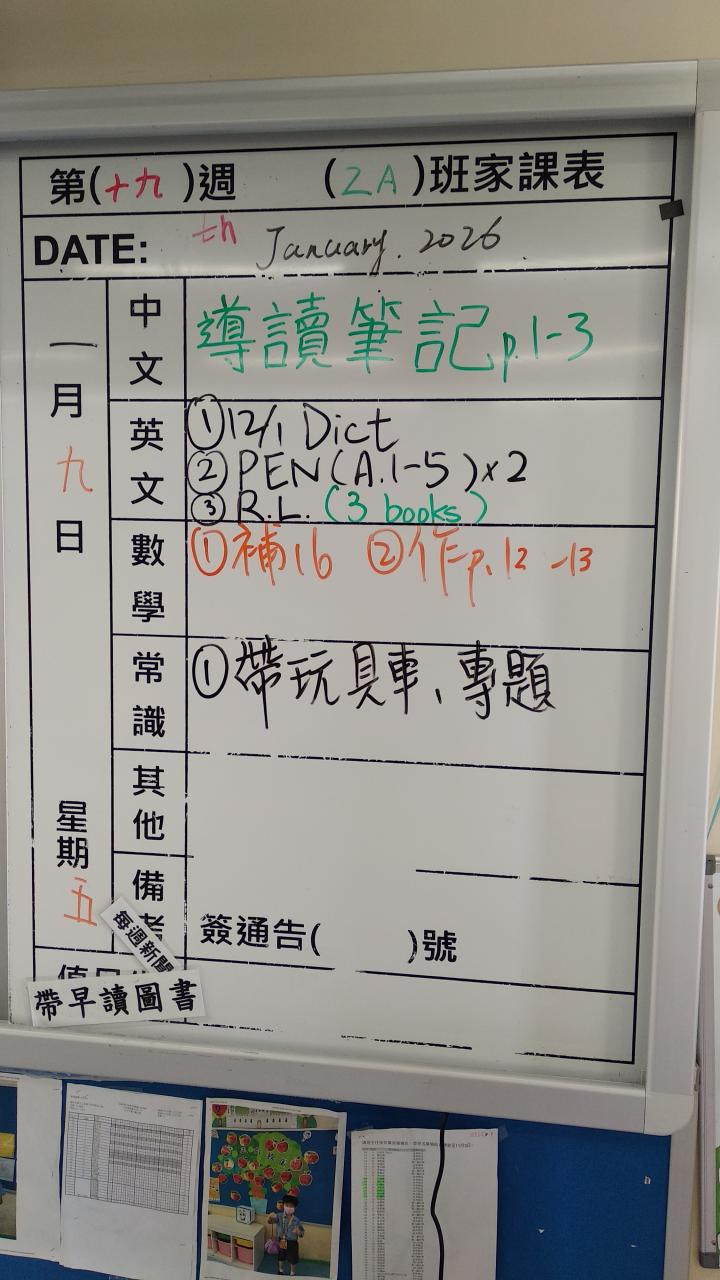 第(十九)週 (2A)班家課表
DATE: th January. 2026
一月九日 星期五
中文 導讀筆記p.1-3
英文 ①12/1 Dict
②PEN(A.1-5)×2
③R.L.(3 books)
數學 ①補16 ②作p.12-13
常識 ①帶玩具車、專題
其他
備考 簽通告( )號
每週新聞
帶早讀圖書